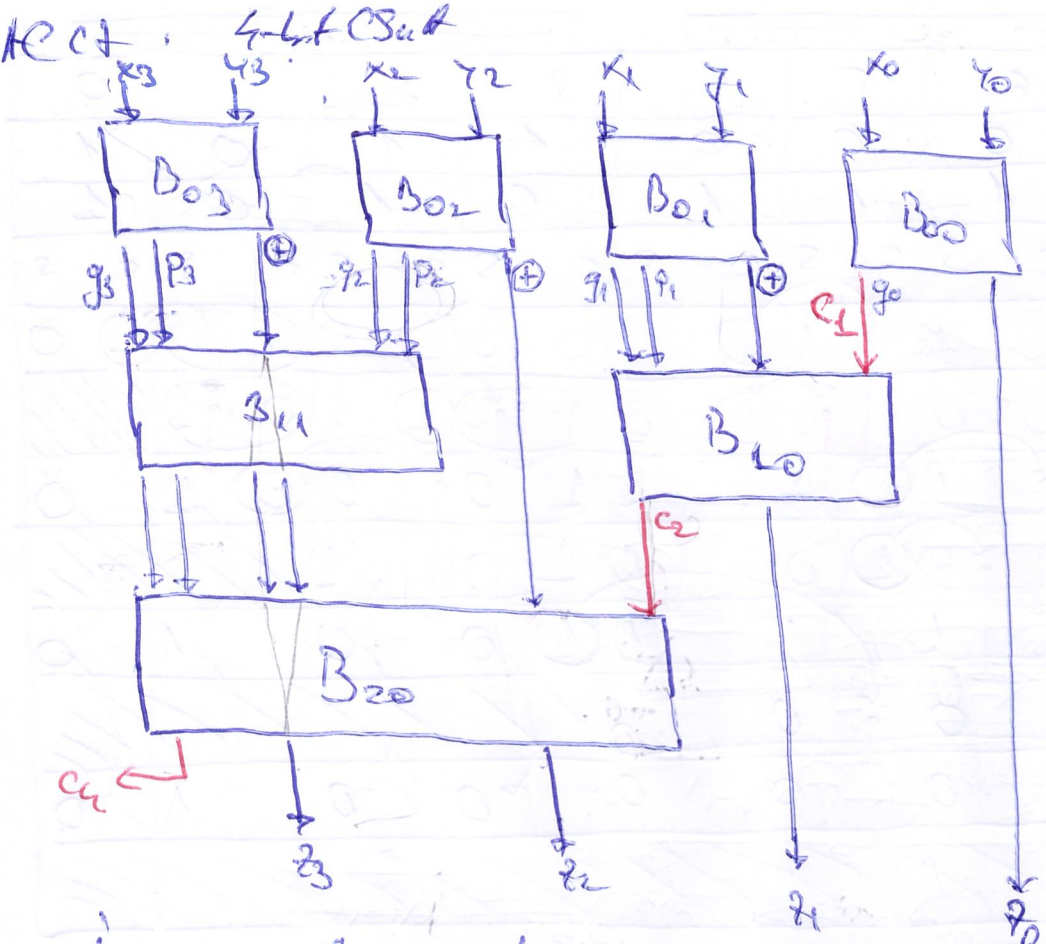 4-bit CSuA
x3 y3 x2 y2 x1 y1 x0 y0
B03 B02 B01 B00
⊕ ⊕ ⊕
g3 p3 g2 p2 g1 p1 C1 g0
B11 B10
C2
B20
C4
z3 z2 z1 z0